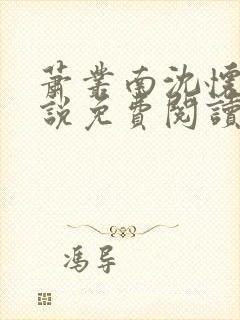 萧業南沈懷
說免費閱讀
馮导